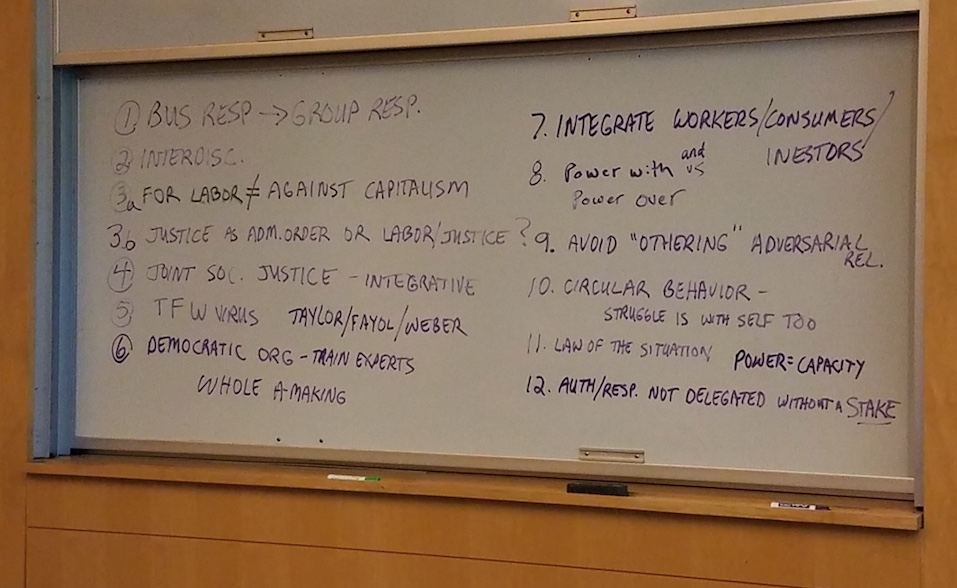 ① BUS RESP → GROUP RESP.
② INTERDISC.
3a FOR LABOR ≠ AGAINST CAPITALISM
3b JUSTICE AS ADM. ORDER OR LABOR/JUSTICE?
④ JOINT SOC. JUSTICE - INTEGRATIVE
⑤ TFW VIRUS TAYLOR/FAYOL/WEBER
⑥ DEMOCRATIC ORG - TRAIN EXPERTS
WHOLE A-MAKING
7. INTEGRATE WORKERS/CONSUMERS/
INESTORS
8. Power with and vs
Power over
9. AVOID "OTHERING" ADVERSARIAL
REL.
10. CIRCULAR BEHAVIOR -
STRUGGLE IS WITH SELF TOO
11. LAW OF THE SITUATION POWER = CAPACITY
12. AUTH/RESP. NOT DELEGATED WITHOUT A STAKE